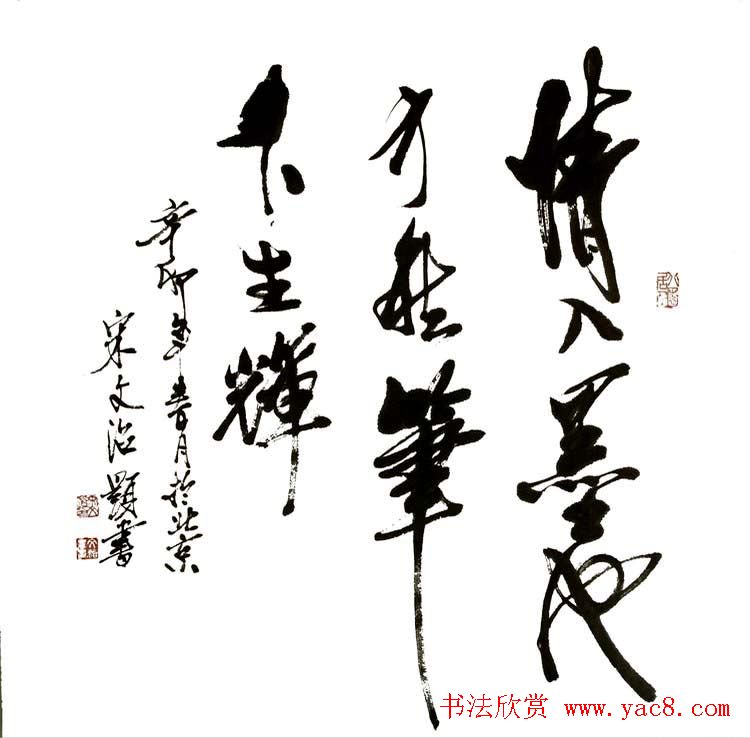 情入墨池
方能筆
下生輝
辛卯年春月於北京
宋文治題書
书法欣赏 www.yac8.com